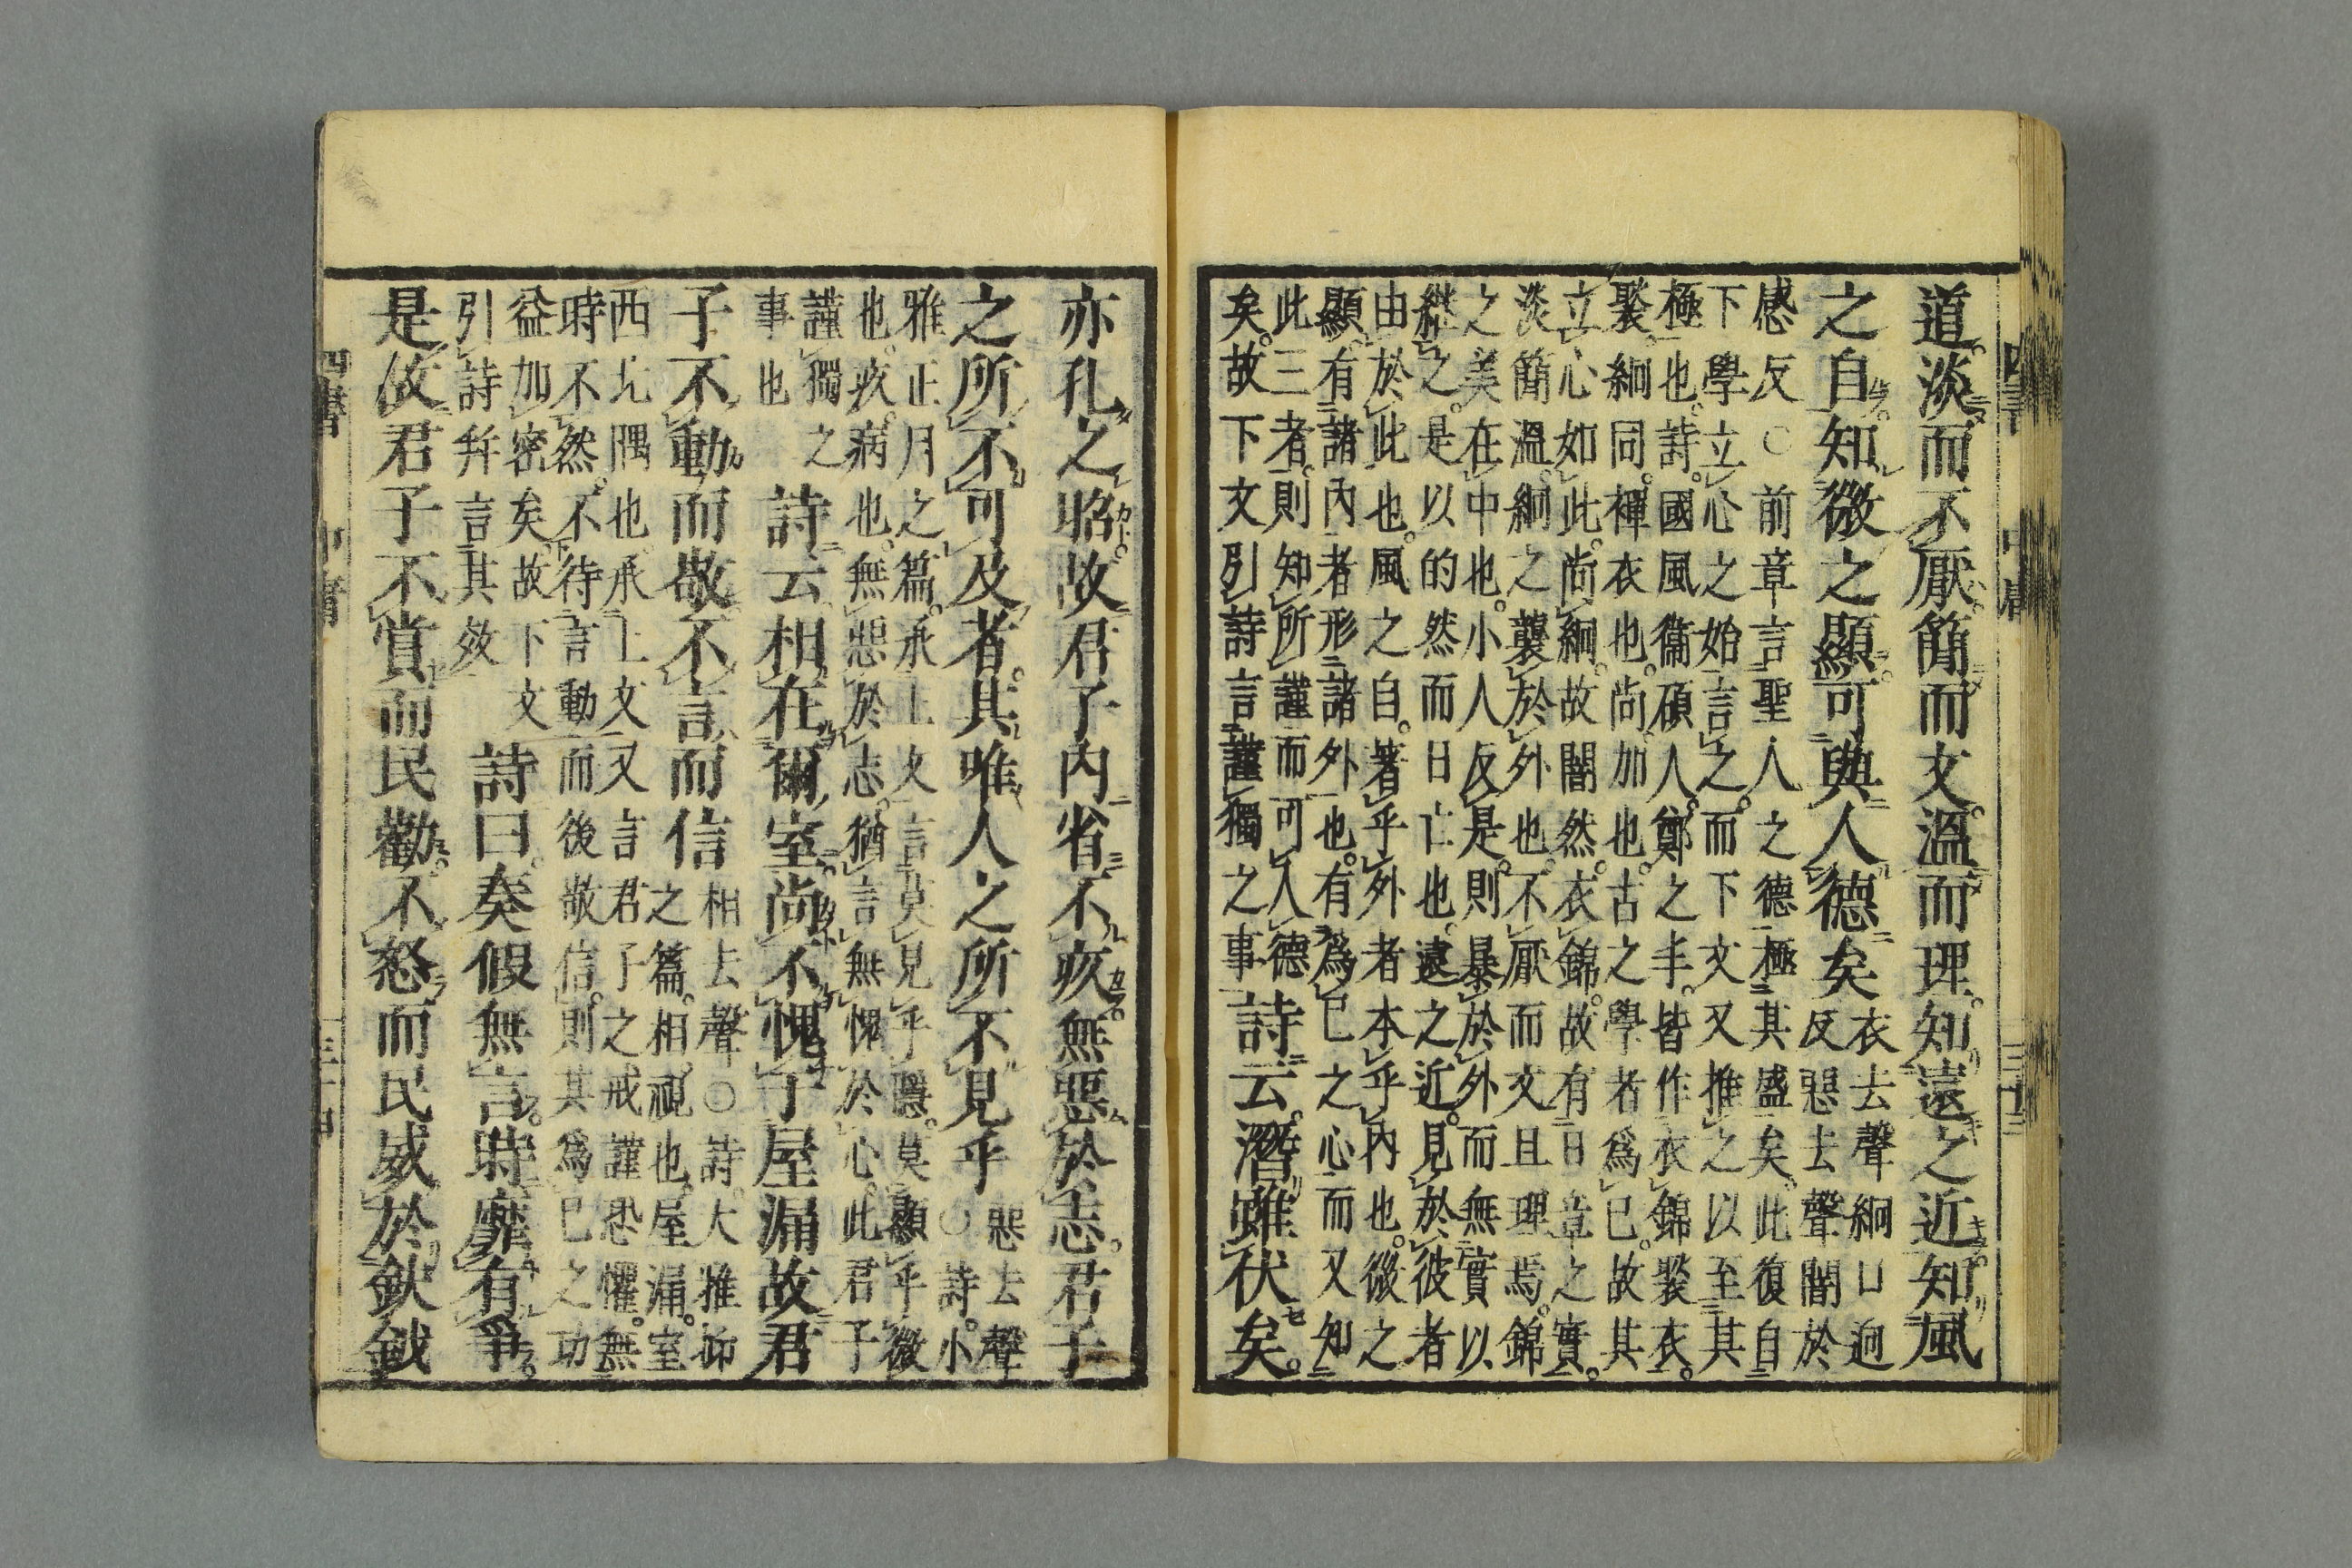 道淡而不厭簡而文溫而理知遠之近知風
之自知微之顯可與人德矣
衣去聲絅口迥
反惡去聲闇於
感反○前章言聖人之德極其盛矣此復自
下學立心之始言之而下文又推之以至其
極也詩國風衞碩人鄭之丰皆作衣錦褧衣
褧絅同襌衣也尚加也古之學者爲己故其
立心如此尚絅故闇然衣錦故有日章之實
淡簡溫絅之襲於外也不厭而文且理焉錦
之美在中也小人反是則暴於外而無實以
繼之是以的然而日亡也遠之近見於彼者
由於此也風之自著乎外者本乎內也微之
顯有諸內者形諸外也有爲己之心而又知
此三者則知所謹而可人德
矣故下文引詩言謹獨之事
詩云潛雖伏矣
亦孔之昭故君子內省不疚無惡於志君子
之所不可及者其唯人之所不見乎
惡去聲
○詩小
雅正月之篇承上文言莫見乎隱莫顯乎微
也疚病也無惡於志猶言無愧於心此君子
謹獨之
事也
詩云相在爾室尚不愧于屋漏故君
子不動而敬不言而信
相去聲○詩大雅抑
之篇相視也屋漏室
西北隅也承上文又言君子之戒謹恐懼無
時不然不待言動而後敬信則其爲己之功
益加密矣故下文
引詩幷言其效
詩曰奏假無言時靡有爭
是故君子不賞而民勸不怒而民威於鈇鉞